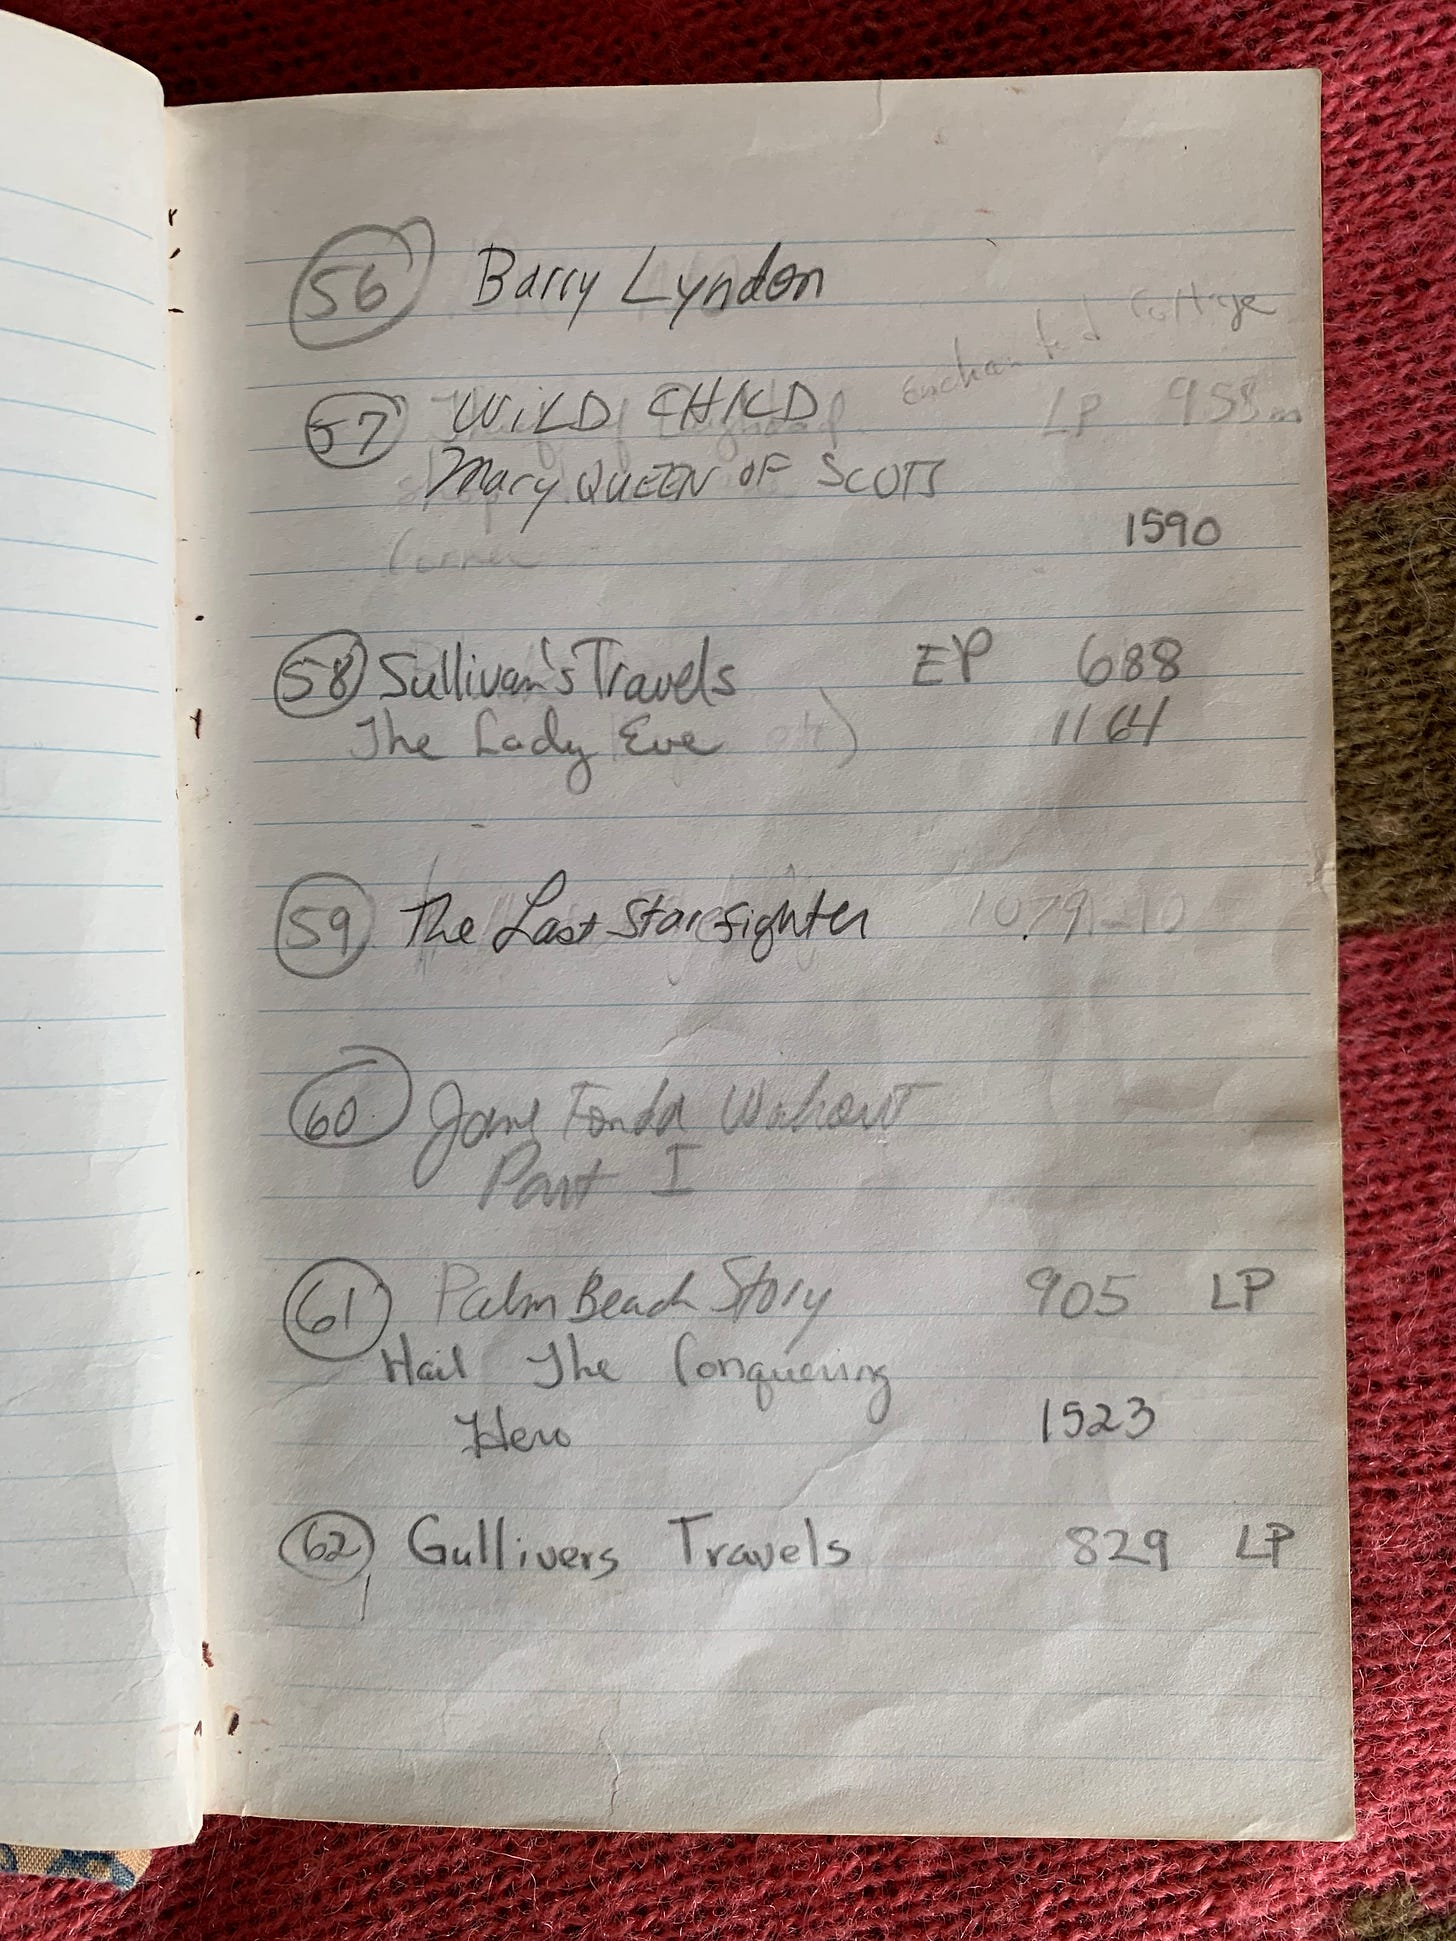 56 Barry Lyndon
Enchanted Cottage
57 WILD CHILD LP 958
Mary QUEEN OF SCOTS
1590
Corner
58 Sullivan's Travels EP 688
The Lady Eve 1164
59 The Last Starfighter 1079-10
60 Jane Fonda Workout
Part I
61 Palm Beach Story 905 LP
Hail The Conquering
Hero 1523
62 Gullivers Travels 829 LP